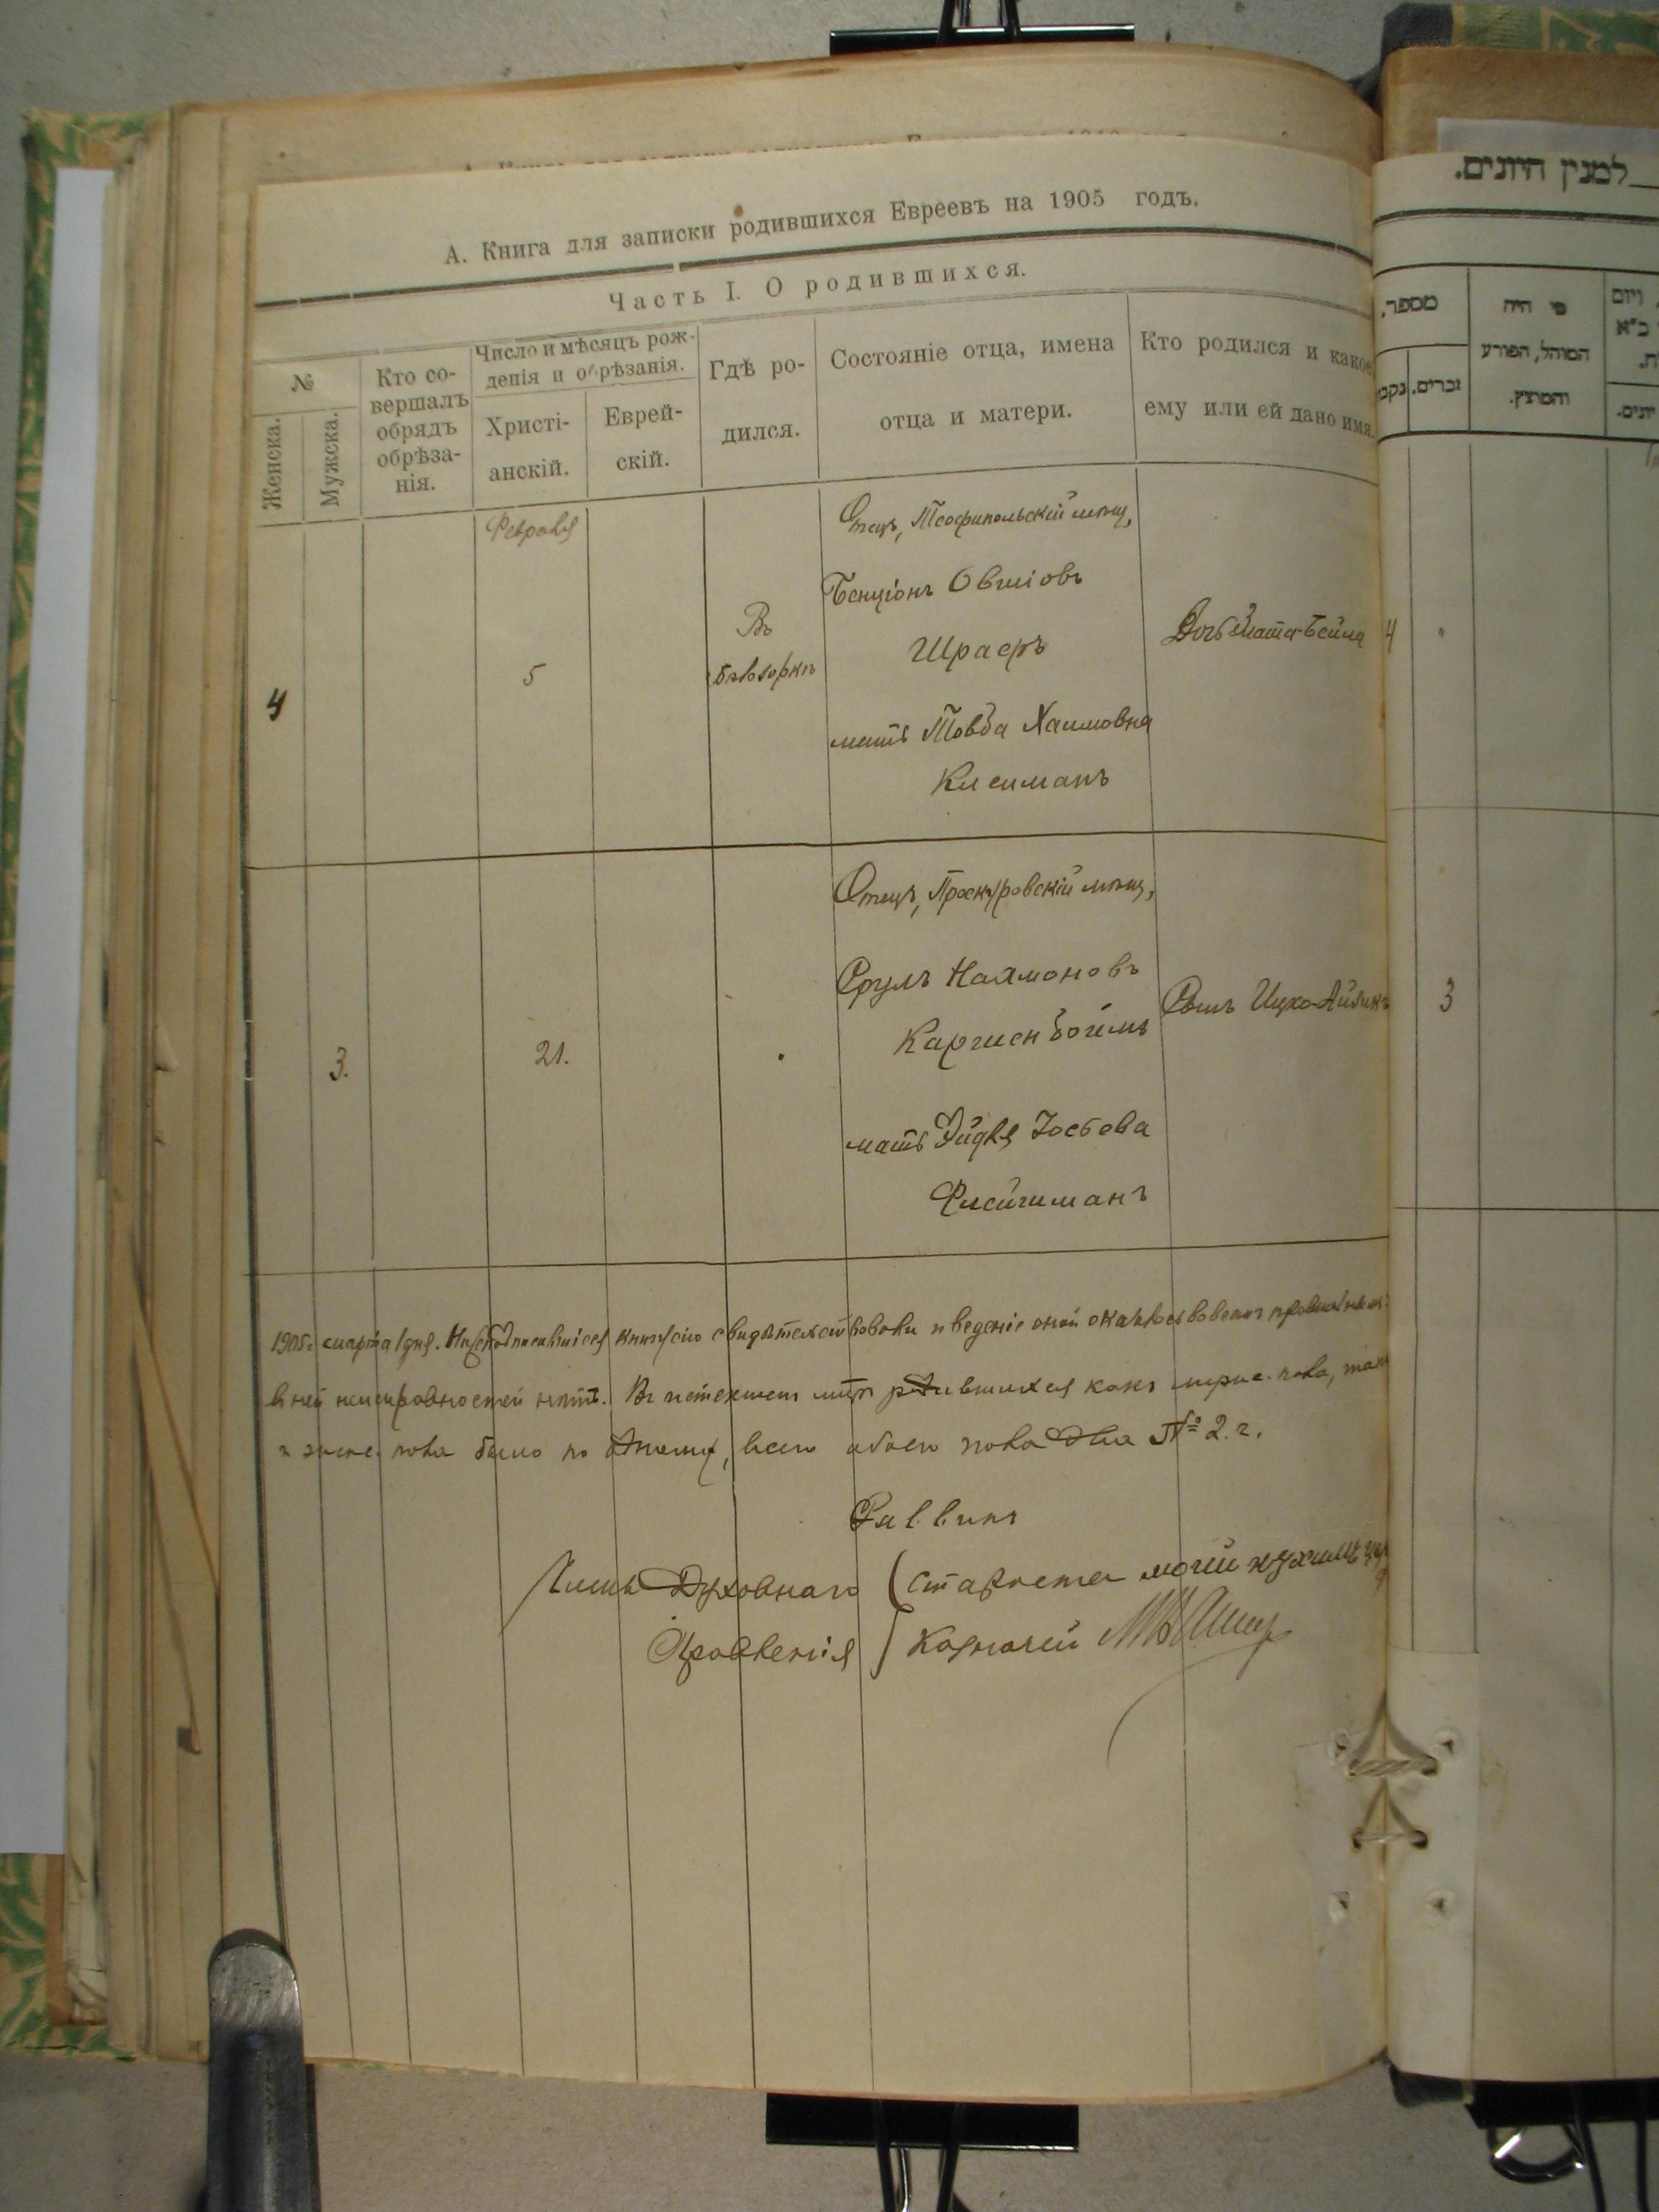 А. Книга для записки родившихся Евреевъ на 1905 годъ.
Часть I. О родившихся.
№
Женска.
Мужска.
Кто со-
вершалъ
обрядъ
обрѣза-
нія.
Число и мѣсяцъ рож-
денія и обрѣзанія.
Христі-
анскій.
Еврей-
скій.
Гдѣ ро-
дился.
Состояніе отца, имена
отца и матери.
Кто родился и какое
ему или ей дано имя.
4
Февраля
5
Въ
Бѣлозоркѣ
Отецъ, Теофипольскій мѣщ,
Бенціонъ Овшіовъ
Шраеръ
мать Товба Хаимовна
Клейманъ
Дочь Злата-Бейла
3.
21.
Отецъ, Проскуровскій мѣщ,
Сруль Нахмановъ
мать Эйдля Іосева
Флейшманъ
Сынъ Ицко-
1905 г. марта 1 дня. книгу сію свидѣтельствовали и веденіе оной
в ней неисправностей нѣтъ. Въ истекшем родившихся какъ пола,
пола было по одному, всего обоего пола два № 2. г.
Раввинъ
Члены Духовнаго
Правленія
Староста
Казначей
למנין היונים.
מספר,
זכרים.
נקב
מי היה
המוהל, הפורע
והמוצץ.
ויום
יונים.
4
3